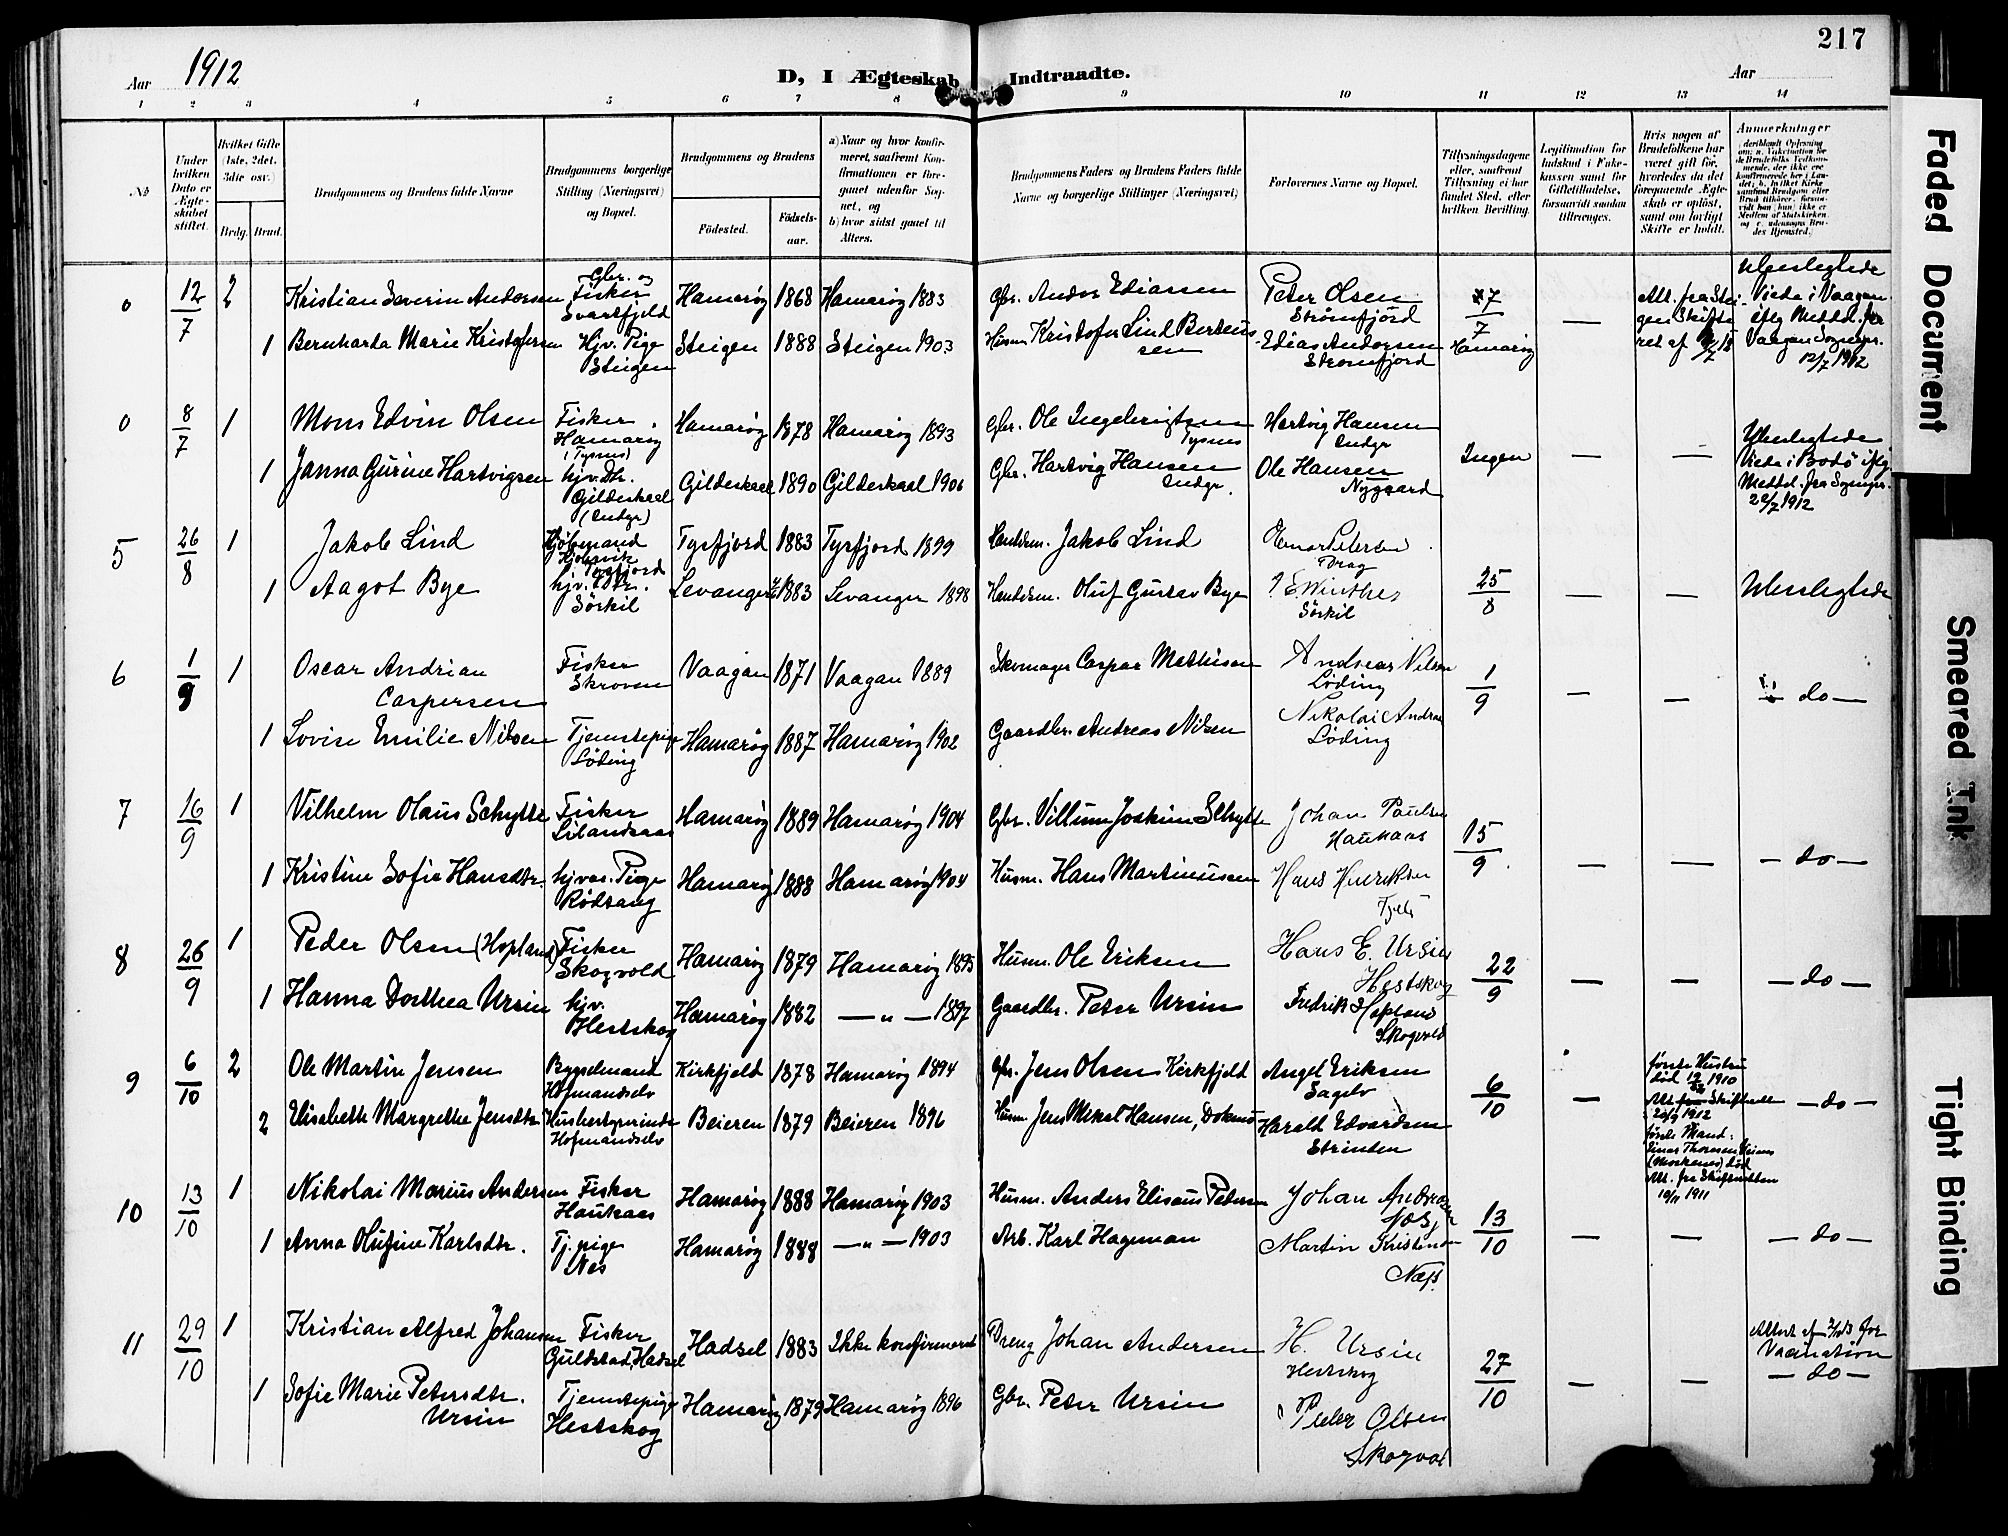 217
Aar 1912
D, I Ægteskab Indtraadte.
Aar
1 2 3 4 5 6 7 8 9 10 11 12 13 14
No
Under hvilken Dato er Ægteskabet stiftet.
Hvilket Gifte (1ste, 2det, 3die osv.)
Brdg. Brud.
Brudgommens og Brudens fulde Navne
Brudgommens borgerlige Stilling (Næringsvei) og Bopæl.
Brudgommens og Brudens
Fødested.
Fødselsaar.
a) Naar og hvor konfirmeret, saafremt Konfirmationen er foregaaet udenfor Sognet, og
b) hvor sidst gaaet til Alters.
Brudgommens Faders og Brudens Faders fulde Navne og borgerlige Stillinger (Næringsvei)
Forlovernes Navne og Bopæl.
Tillysningsdagene eller, saafremt Tillysning ei har fundet Sted, efter hvilken Bevilling.
Legitimation for Indskud i Enkekassen samt for Giftetilladelse, forsaavidt saadan tiltrænges.
Hvis nogen af Brudefolkene har været gift før, hvorledes da det foregaaende Ægteskab er opløst, samt om lovligt Skifte er holdt.
Anmerkninger
0 12/7 2 Kristian Severin Andersen Gbr. og Fisker Svartfjeld Hamarøy 1868 Hamarøy 1883 Gbr. Andor Ediassen Peter Olsen Strømfjord 7/7 Hamarøy — Att. fra Steigen Skifteret af Ubeslegtede Viede i Vaagan iflg Meddel. fra Vaagan Sognepr. 12/7 1912
1 Bernharda Marie Kristofersen Hjv. Pige Steigen Steigen 1888 Steigen 1903 Husm Kristofer Lind Berteussen Edias Andersen Strømfjord
0 8/7 1 Mons Edvin Olsen Fisker Hamarøy (Tysnes) Hamarøy 1878 Hamarøy 1893 Gbr. Ole Ingebrigtsen Tysnes Hartvig Hansen Indyr Ingen — — Ubeslegtede Viede i Bodø iflg. Meddel. fra Sognepr. 22/7 1912
1 Janna Gurine Hartvigsen hjv. Dtr. Gildeskaal (Indyr) Gildeskaal 1890 Gildeskaal 1906 Gbr. Hartvig Hansen Indyr. Ole Hansen Nygaard
5 26/8 1 Jakob Lind Kjøbmand Kjøbsvik Tysfjord Tysfjord 1883 Tysfjord 1899 Handelsm. Jakob Lind Petersen Drag 25/8 — — Ubeslegtede
1 Aagot Bye hjv. Dtr. Sørkil Levanger 1883 Levanger 1898 Handelsm. Oluf Gustav Bye Winther Sørkil
6 1/9 1 Oscar Andrian Caspersen Fisker Skroven Vaagan 1871 Vaagan 1889 Skomager Caspar Mathisen Andreas Nilsen Løding 1/9 — — do —
1 Lovise Emilie Nilsen Tjenestepige Løding Hamarøy 1887 Hamarøy 1902 Gaardbr. Andreas Nilsen Nikolai Andreas Løding
7 16/9 1 Vilhelm Olaus Schytte Fisker Lilandsaas Hamarøy 1889 Hamarøy 1904 Gbr. Villum Joakim Schytte Johan Paulsen Haukaas 15/9 — — — do —
1 Kristine Sofie Hansdtr. hjvær. Pige Rødsang Hamarøy 1888 Hamarøy 1904 Husm. Hans Martinussen Hans Henriksen
8 26/9 1 Peder Olsen (Hopland) Fisker Skogvold Hamarøy 1879 Hamarøy 1895 Husm. Ole Eriksen Hans E. Ursin Hestskog 22/9 — — — do —
1 Hanna Dorthea Ursin hjv. Hestskog Hamarøy 1882 — „ — 1897 Gaardbr. Peter Ursin Fredrik Hopland Skogvold
9 6/10 2 Ole Martin Jensen Bygselmand Hofmandselv Kirkfjeld 1878 Hamarøy 1894 Gbr. Jens Olsen Kirkfjeld Angel Eriksen Sagelv 6/10 — første Hustru død 1910 Att. fra Skifteret 1912 — do —
2 Elisabeth Margrethe Jensdtr Husbestyrerinde Hofmandselv Beieren 1879 Beieren 1896 Husm. Jens Mikal Hansen, Harald Edvardsen Strinden første Mand: Einar Thoresen død Att. fra Skifteretten 1911
10 13/10 1 Nikolai Marius Andersen Fisker Haukaas Hamarøy 1888 Hamarøy 1903 Husm. Anders Elisæus Petersen Johan Andreasen Næs 13/10 — — — do —
1 Anna Olufine Karlsdtr. Tj. pige Nes Hamarøy 1888 — „ — 1903 Arb. Karl Hageman Martin Kristensen Næss
11 29/10 1 Kristian Alfred Johansen Fisker Guldstad, Hadsel Hadsel 1883 Ikke konfirmeret Dreng Johan Andersen H. Ursin Hestskog 27/10 — — Attest af for Vacination — do —
1 Sofie Marie Petersdtr. Ursin Tjenestepige Hestskog Hamarøy 1879 Hamarøy 1896 Gbr. Peter Ursin Peder Olsen Skogvold
Faded Document
Smeared Ink
Tight Binding